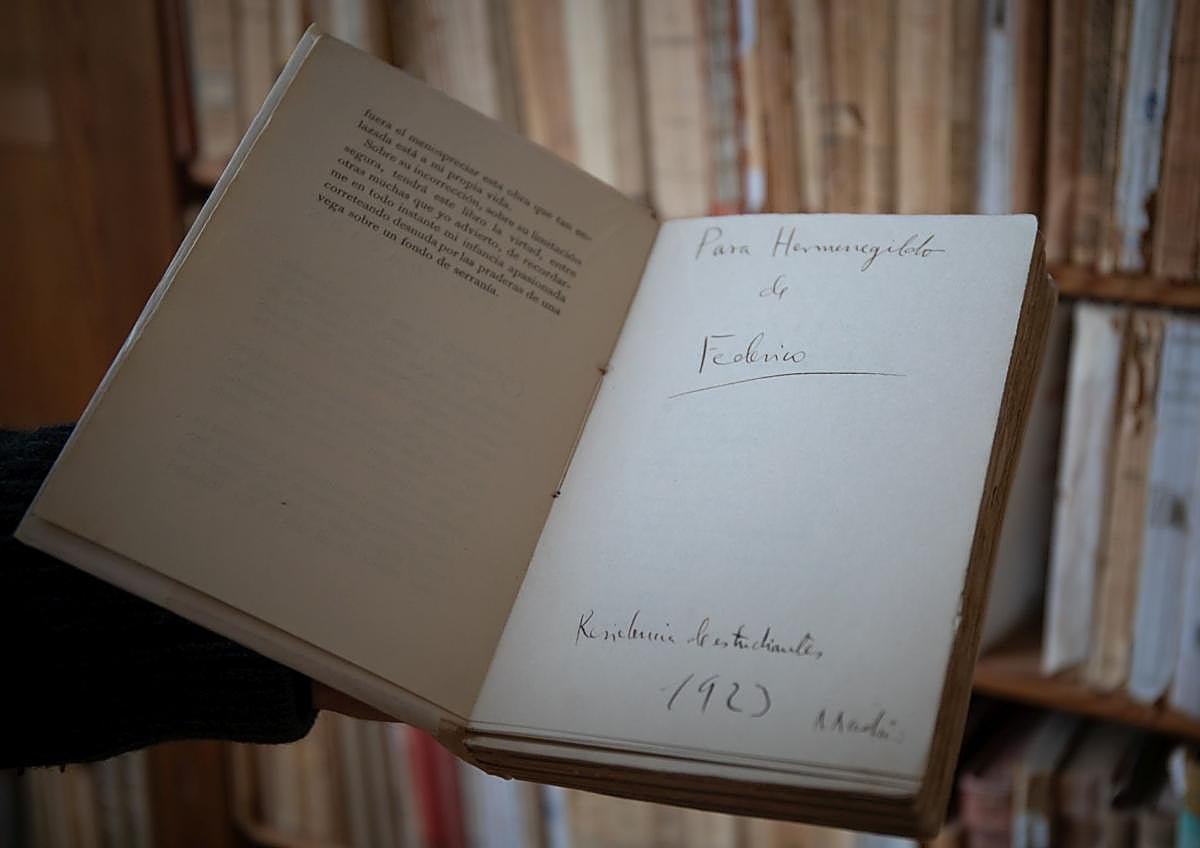 fuera el menospreciar esta obra que tan en-
lazada está a mi propia vida.
Sobre su incorrección, sobre su limitación
segura, tendrá este libro la virtud, entre
otras muchas que yo advierto, de recordar-
me en todo instante mi infancia apasionada
correteando desnuda por las praderas de una
vega sobre un fondo de serranía.
Para Hermenegildo
de
Federico
Residencia de estudiantes
1923
Madrid